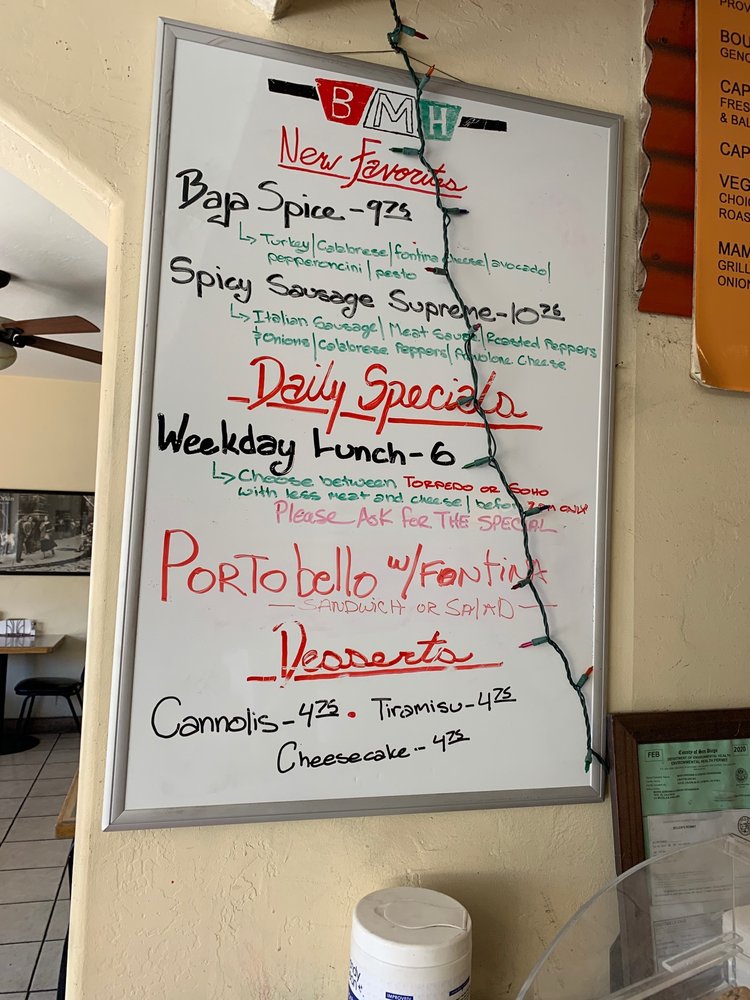 BMH
New Favorites
Baja Spice - 9.75
Turkey/Calabrese/fontina cheese/avocado/
pepperoncini/pesto
Spicy Sausage Supreme - 10.75
Italian Sausage/Meat Sauce/Roasted Peppers
& Onions/Calabrese Peppers/Provolone Cheese
Daily Specials
Weekday Lunch - 6
Choose between TORPEDO or SOHO
with less meat and cheese/before 2PM ONLY
Please Ask for THE SPECIAL
PORTObello w/FONTINA
— SANDWICH OR SALAD —
Desserts
Cannolis - 4.75 • Tiramisu - 4.75
Cheesecake - 4.75
PROV
BOU
GENO
CAP
FRES
& BAL
CAP
VEG
CHOI
ROAS
MAM
GRILL
ONION
FEB
County of San Diego
2020
DEPARTMENT OF ENVIRONMENTAL HEALTH
ENVIRONMENTAL HEALTH PERMIT
SELLER'S PERMIT